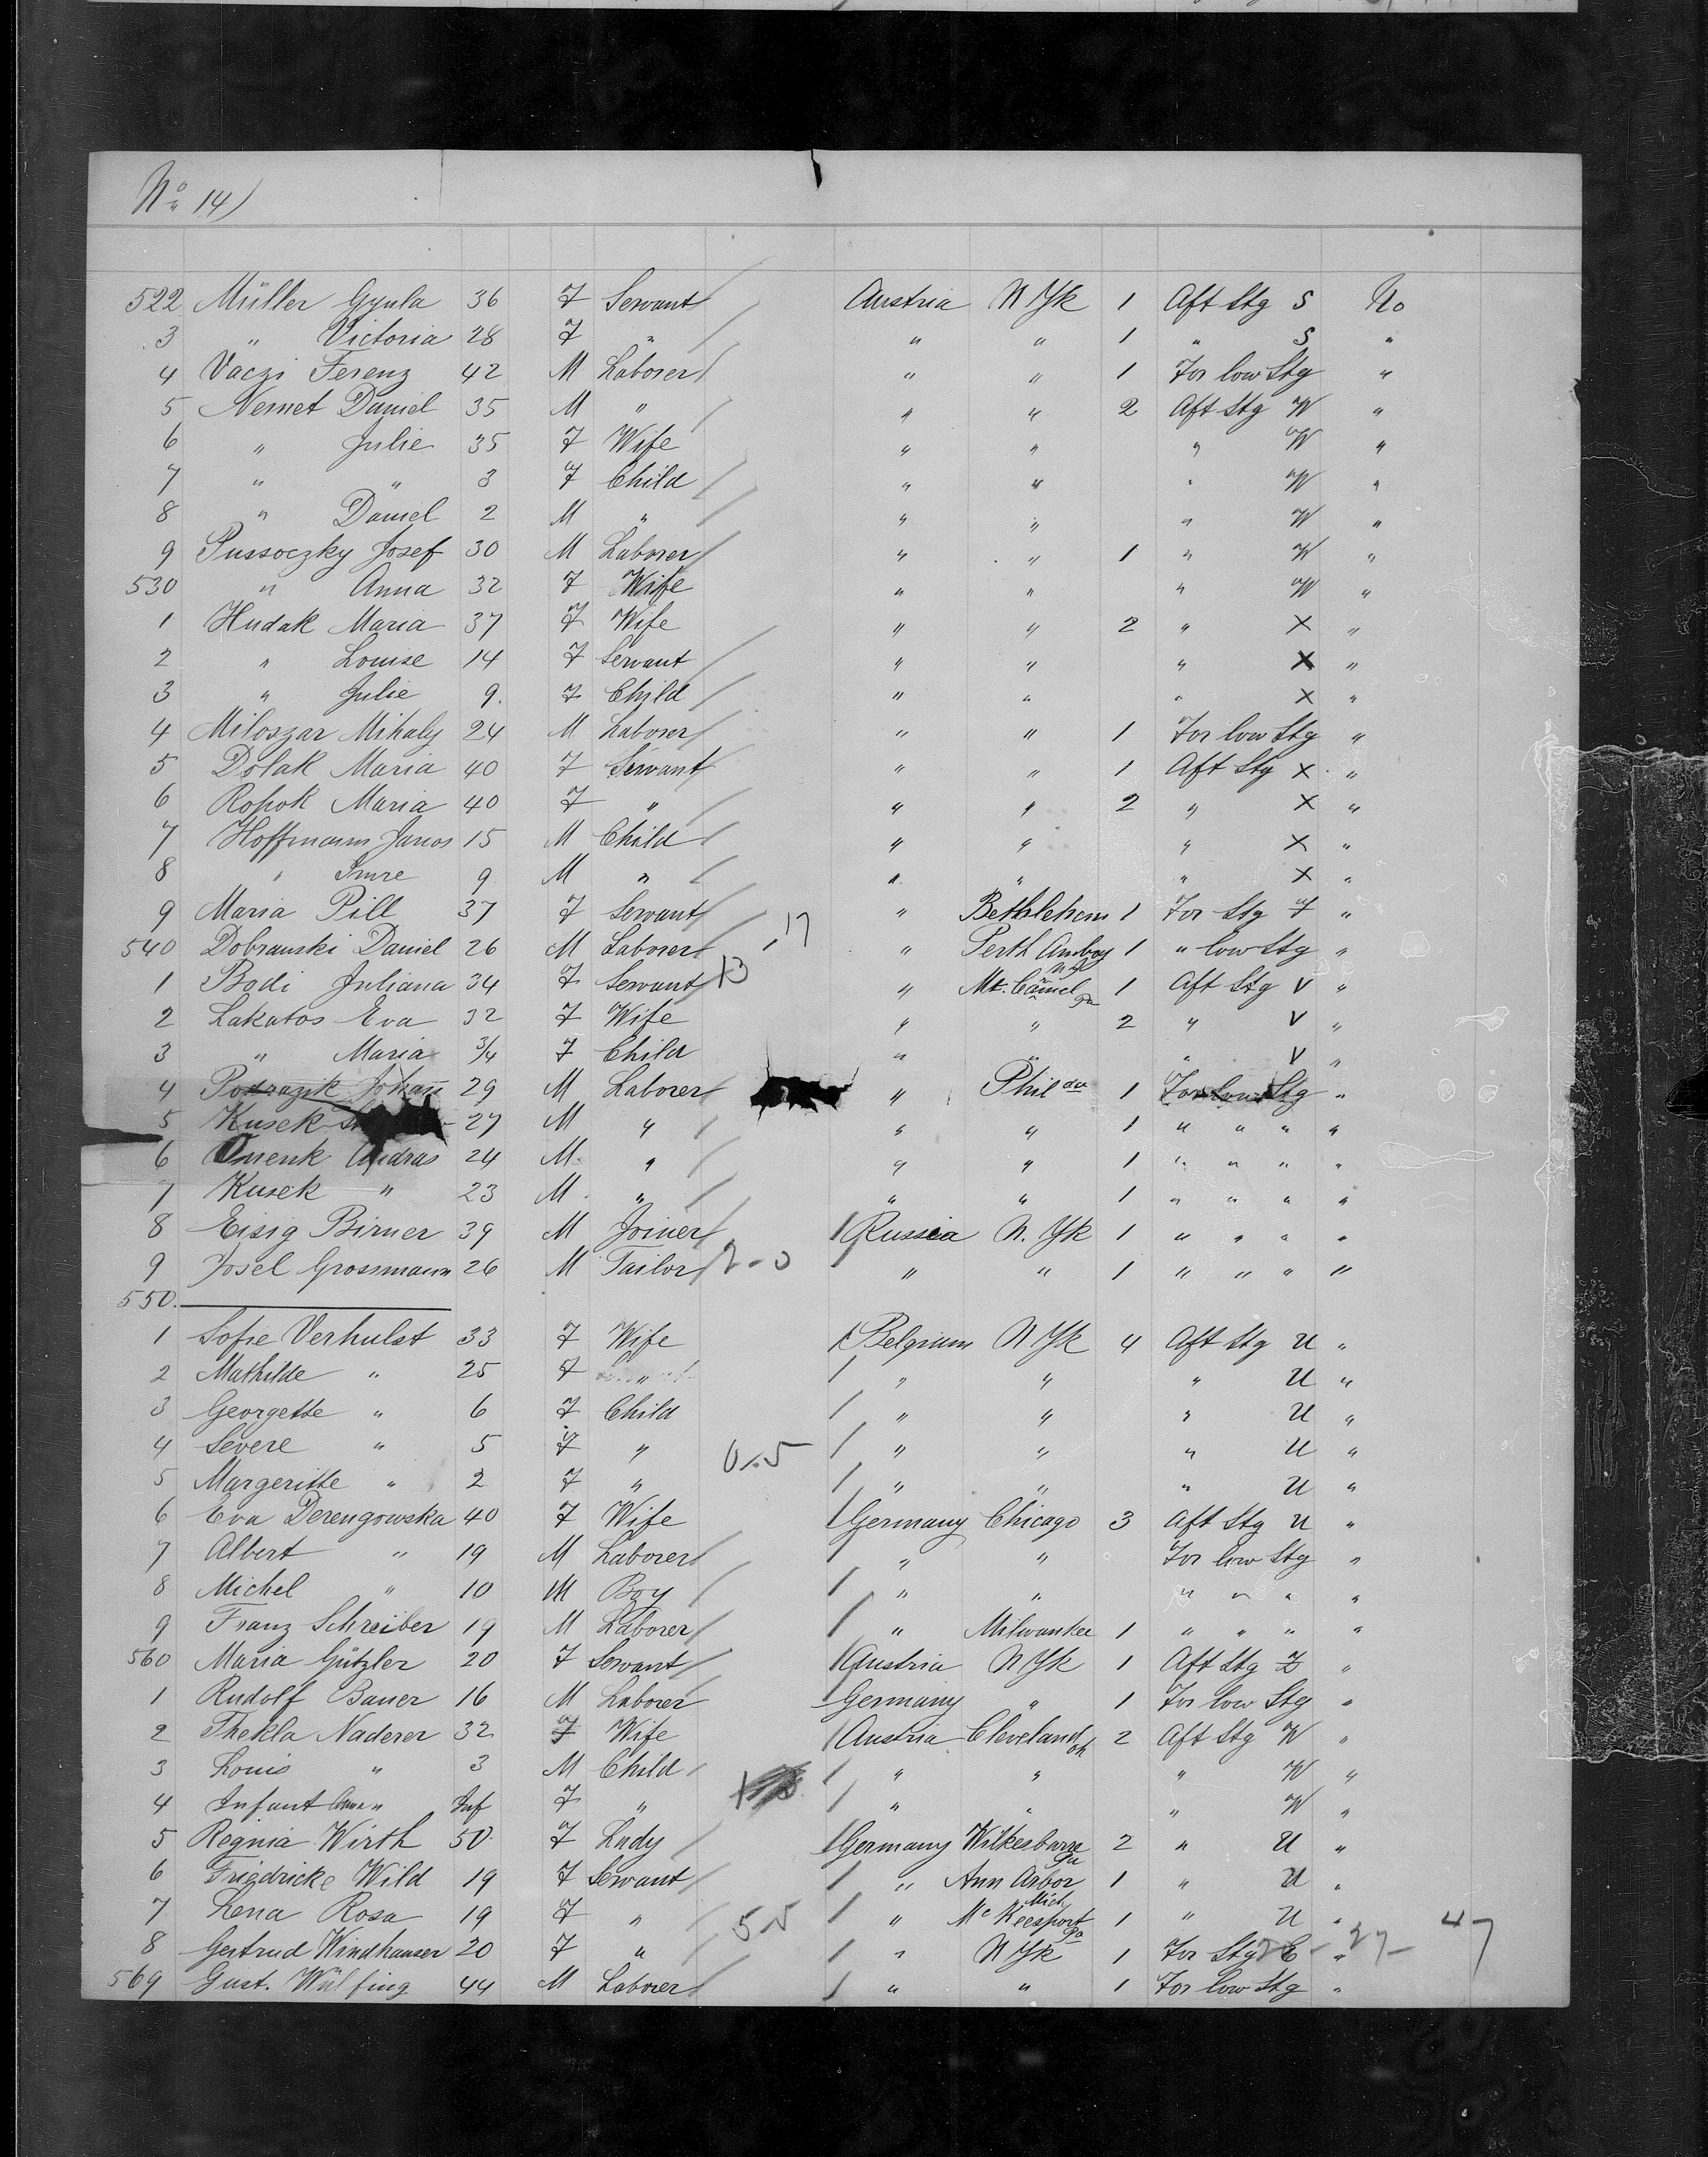 No 14)
522 Müller Gyula 36 F Servant Austria N Yk 1 Aft Stg S No
3 " Victoria 28 F " " " 1 " S "
4 Vaczi Ferenz 42 M Laborer " " 1 For low Stg "
5 Nemet Daniel 35 M " " " 2 Aft Stg W "
6 " Julie 35 F Wife " " " W "
7 " " 3 F Child " " " W "
8 " Daniel 2 M " " " " W "
9 Pussoczky Josef 30 M Laborer " " 1 " W "
530 " Anna 32 F Wife " " " W "
1 Hudak Maria 37 F Wife " " 2 " X "
2 " Louise 14 F Servant " " " X "
3 " Julie 9. F Child " " " X "
4 Miloszar Mihaly 24 M Laborer " " 1 For low Stg "
5 Dolak Maria 40 F Servant " " 1 Aft Stg X "
6 Ropok Maria 40 F " " " 2 " X "
7 Hoffmann Janos 15 M Child " " " X "
8 " Imre 9 M " " " " X "
9 Maria Pill 37 F Servant " Bethlehem 1 For Stg F "
540 Dobranski Daniel 26 M Laborer 17 " Perth Amboy 1 " low Stg "
1 Bodi Juliana 34 F Servant 13 " Mt. Camel Pa 1 Aft Stg V "
2 Lakatos Eva 32 F Wife " " 2 " V "
3 " Maria 3/4 F Child " " " V "
4 Podrazik Johan 29 M Laborer " Philda 1 For low Stg "
5 Kusek 27 M " " " 1 " " " "
6 Andras 24 M " " " 1 " " " "
7 Kusek " 23 M " " " 1 " " " "
8 Eisig Birner 39 M Joiner Russia N. Yk 1 " " " "
9 Josel Grossmann 26 M Tailor " " 1 " " " "
550.
1 Sofie Verhulst 33 F Wife Belgium N Yk 4 Aft Stg U "
2 Mathilde " 25 F " " " " U "
3 Georgette " 6 F Child " " " U "
4 Severe " 5 F " " " " U "
5 Margeritte " 2 F " " " " U "
6 Eva Derengowska 40 F Wife Germany Chicago 3 Aft Stg U "
7 Albert " 19 M Laborer " " For low Stg "
8 Michel " 10 M Boy " " " " " "
9 Franz Schreiber 19 M Laborer " Milwaukee 1 " " " "
560 Maria Gützler 20 F Servant Austria N Yk 1 Aft Stg Z "
1 Rudolf Bauer 16 M Laborer Germany " 1 For low Stg "
2 Thekla Naderer 32 F Wife Austria Cleveland Oh 2 Aft Stg W "
3 Louis " 3 M Child " " " W "
4 Infant Anna " Inf F " " " " W "
5 Reginia Wirth 50. F Lady Germany Wilkesbarre Pa 2 " U "
6 Friedricke Wild 19 F Servant " Ann Arbor Mich 1 " U "
7 Lena Rosa 19 F " 55 " Mc Keesport Pa 1 " U " 47
8 Gertrud Windhauser 20 F " " N Yk 1 For Stg E "
569 Gust. Wülfing 44 M Laborer " " 1 For low Stg "